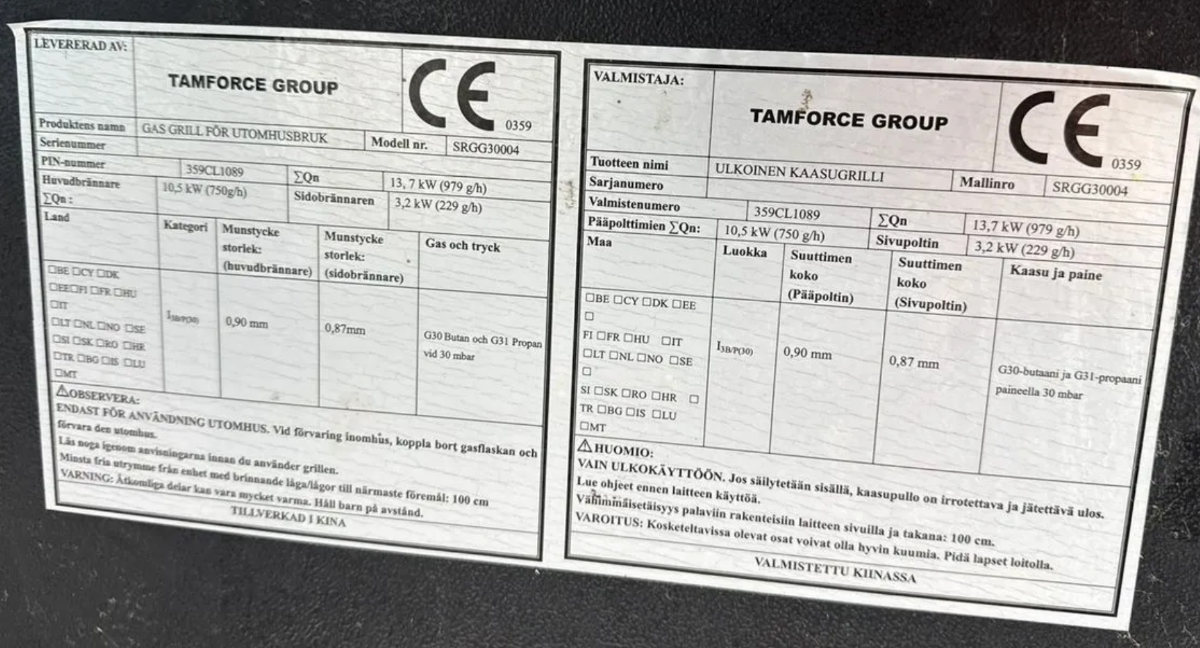 LEVERERAD AV:
TAMFORCE GROUP
CE 0359
Produktens namn GAS GRILL FÖR UTOMHUSBRUK Modell nr. SRGG30004
Serienummer
PIN-nummer 359CL1089 ∑Qn 13, 7 kW (979 g/h)
Huvudbrännare ∑Qn : 10,5 kW (750g/h) Sidobrännaren 3,2 kW (229 g/h)
Land Kategori Munstycke storlek: (huvudbrännare) Munstycke storlek: (sidobrännare) Gas och tryck
☐BE ☐CY ☐DK
☐EE☐FI ☐FR ☐HU
☐IT
☐LT ☐NL ☐NO ☐SE
☐SI ☐SK ☐RO ☐HR
☐TR ☐BG ☐IS ☐LU
☐MT
I3B/P(30) 0,90 mm 0,87mm G30 Butan och G31 Propan
vid 30 mbar
⚠OBSERVERA:
ENDAST FÖR ANVÄNDNING UTOMHUS. Vid förvaring inomhus, koppla bort gasflaskan och
förvara den utomhus.
Läs noga igenom anvisningarna innan du använder grillen.
Minsta fria utrymme från enhet med brinnande låga/lågor till närmaste föremål: 100 cm
VARNING: Åtkomliga delar kan vara mycket varma. Håll barn på avstånd.
TILLVERKAD I KINA
VALMISTAJA:
TAMFORCE GROUP
CE 0359
Tuotteen nimi ULKOINEN KAASUGRILLI Mallinro SRGG30004
Sarjanumero
Valmistenumero 359CL1089 ∑Qn 13,7 kW (979 g/h)
Pääpolttimien ∑Qn: 10,5 kW (750 g/h) Sivupoltin 3,2 kW (229 g/h)
Maa Luokka Suuttimen koko (Pääpoltin) Suuttimen koko (Sivupoltin) Kaasu ja paine
☐BE ☐CY ☐DK ☐EE
☐
FI ☐FR ☐HU ☐IT
☐LT ☐NL ☐NO ☐SE
☐
SI ☐SK ☐RO ☐HR ☐
TR ☐BG ☐IS ☐LU
☐MT
I3B/P(30) 0,90 mm 0,87 mm G30-butaani ja G31-propaani
paineella 30 mbar
⚠HUOMIO:
VAIN ULKOKÄYTTÖÖN. Jos säilytetään sisällä, kaasupullo on irrotettava ja jätettävä ulos.
Lue ohjeet ennen laitteen käyttöä.
Vähimmäisetäisyys palaviin rakenteisiin laitteen sivuilla ja takana: 100 cm.
VAROITUS: Kosketeltavissa olevat osat voivat olla hyvin kuumia. Pidä lapset loitolla.
VALMISTETTU KIINASSA